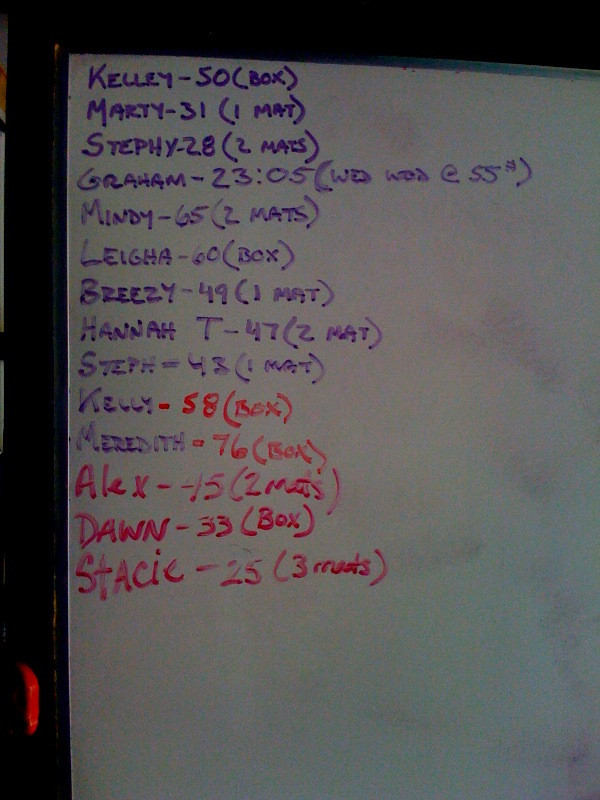 KELLEY - 50 (BOX)
MARTY - 31 (1 MAT)
STEPHY - 28 (2 MATS)
GRAHAM - 23:05 (WED WOD @ 55#)
MINDY - 65 (2 MATS)
LEIGHA - 60 (BOX)
BREEZY - 49 (1 MAT)
HANNAH T - 47 (2 MAT)
STEPH - 43 (1 MAT)
KELLY - 58 (BOX)
MEREDITH - 76 (BOX)
Alex - 45 (2 mats)
DAWN - 33 (BOX)
STACIE - 25 (3 mats)